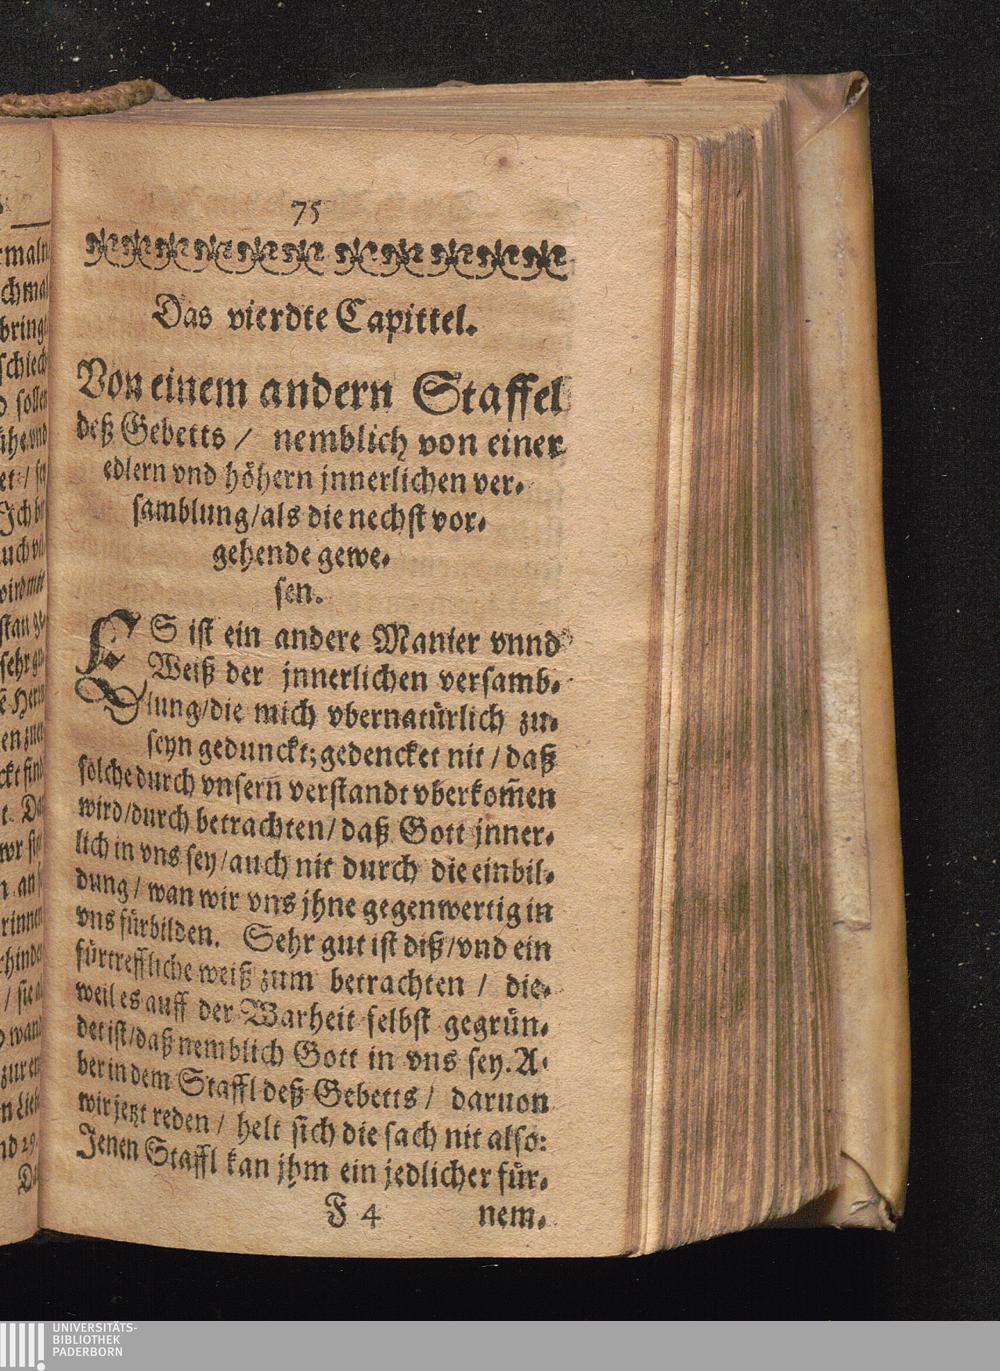 75
Das vierdte Capittel.
Von einem andern Staffel
deß Gebetts / nemblich von einer
edlern vnd höhern jnnerlichen ver⸗
samblung/als die nechst vor⸗
gehende gewe⸗
sen.
ES ist ein andere Manier vnnd
Weiß der jnnerlichen versamb⸗
lung/die mich vbernatürlich zu⸗
seyn gedunckt; gedencket nit / daß
solche durch vnsern verstandt vberkom̃en
wird/durch betrachten/ daß Gott jnner⸗
lich in vns sey/auch nit durch die einbil⸗
dung / wan wir vns jhne gegenwertig in
vns fürbilden. Sehr gut ist diß/vnd ein
fürtreffliche weiß zum betrachten / die⸗
weil es auff der Warheit selbst gegrün⸗
det ist/daß nemblich Gott in vns sey. A⸗
ber in dem Staffl deß Gebetts / daruon
wir jetzt reden / helt sich die sach nit also:
Jenen Staffl kan jhm ein jedlicher für⸗
F 4 nem⸗
UNIVERSITÄTS-
BIBLIOTHEK
PADERBORN